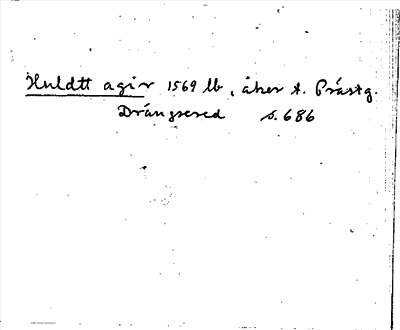 Huldtt agir 1569 lb, åker t. Prästg.
Drängsered s. 686